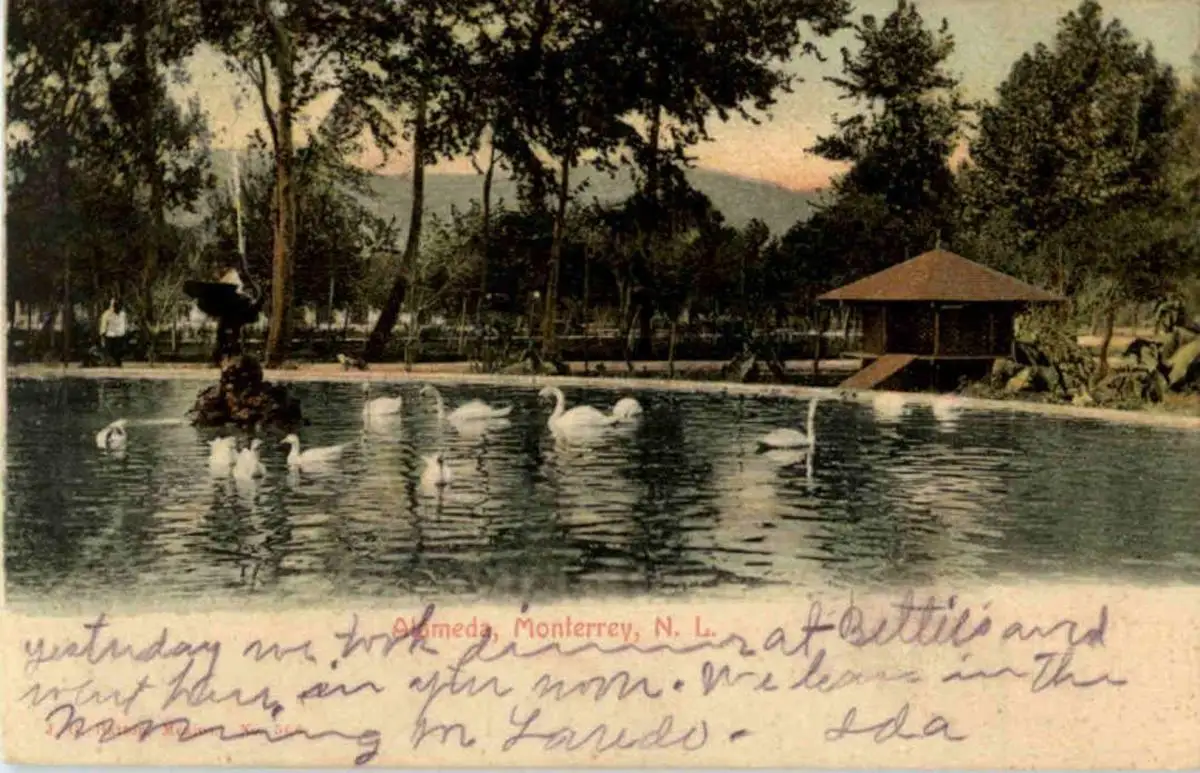 Alameda, Monterrey, N. L.
yesterday we took dinner at Bettie's and
went here in after noon. We leave in the
morning for Laredo - Ida